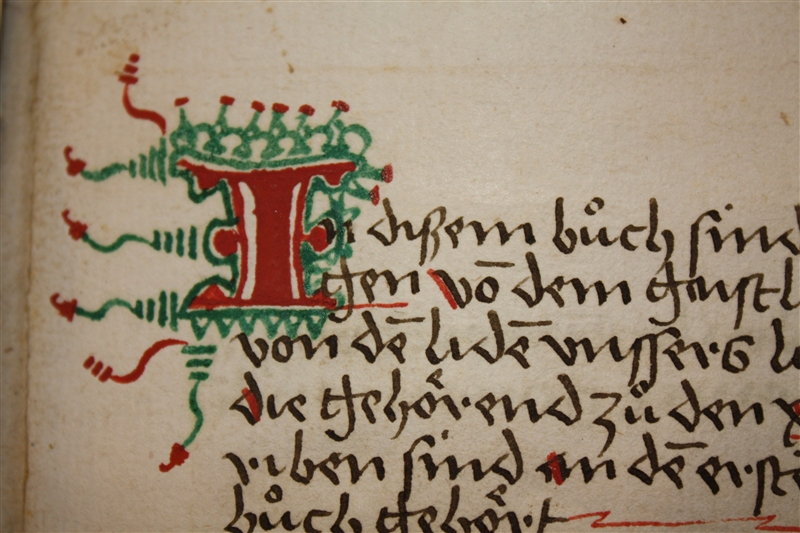 In dißem bůch sind
gen vō dem geistl
von dē lidē vnssers
die gehoͤrend zů den
riben sind an dē erstē
bůch gehoͤrt